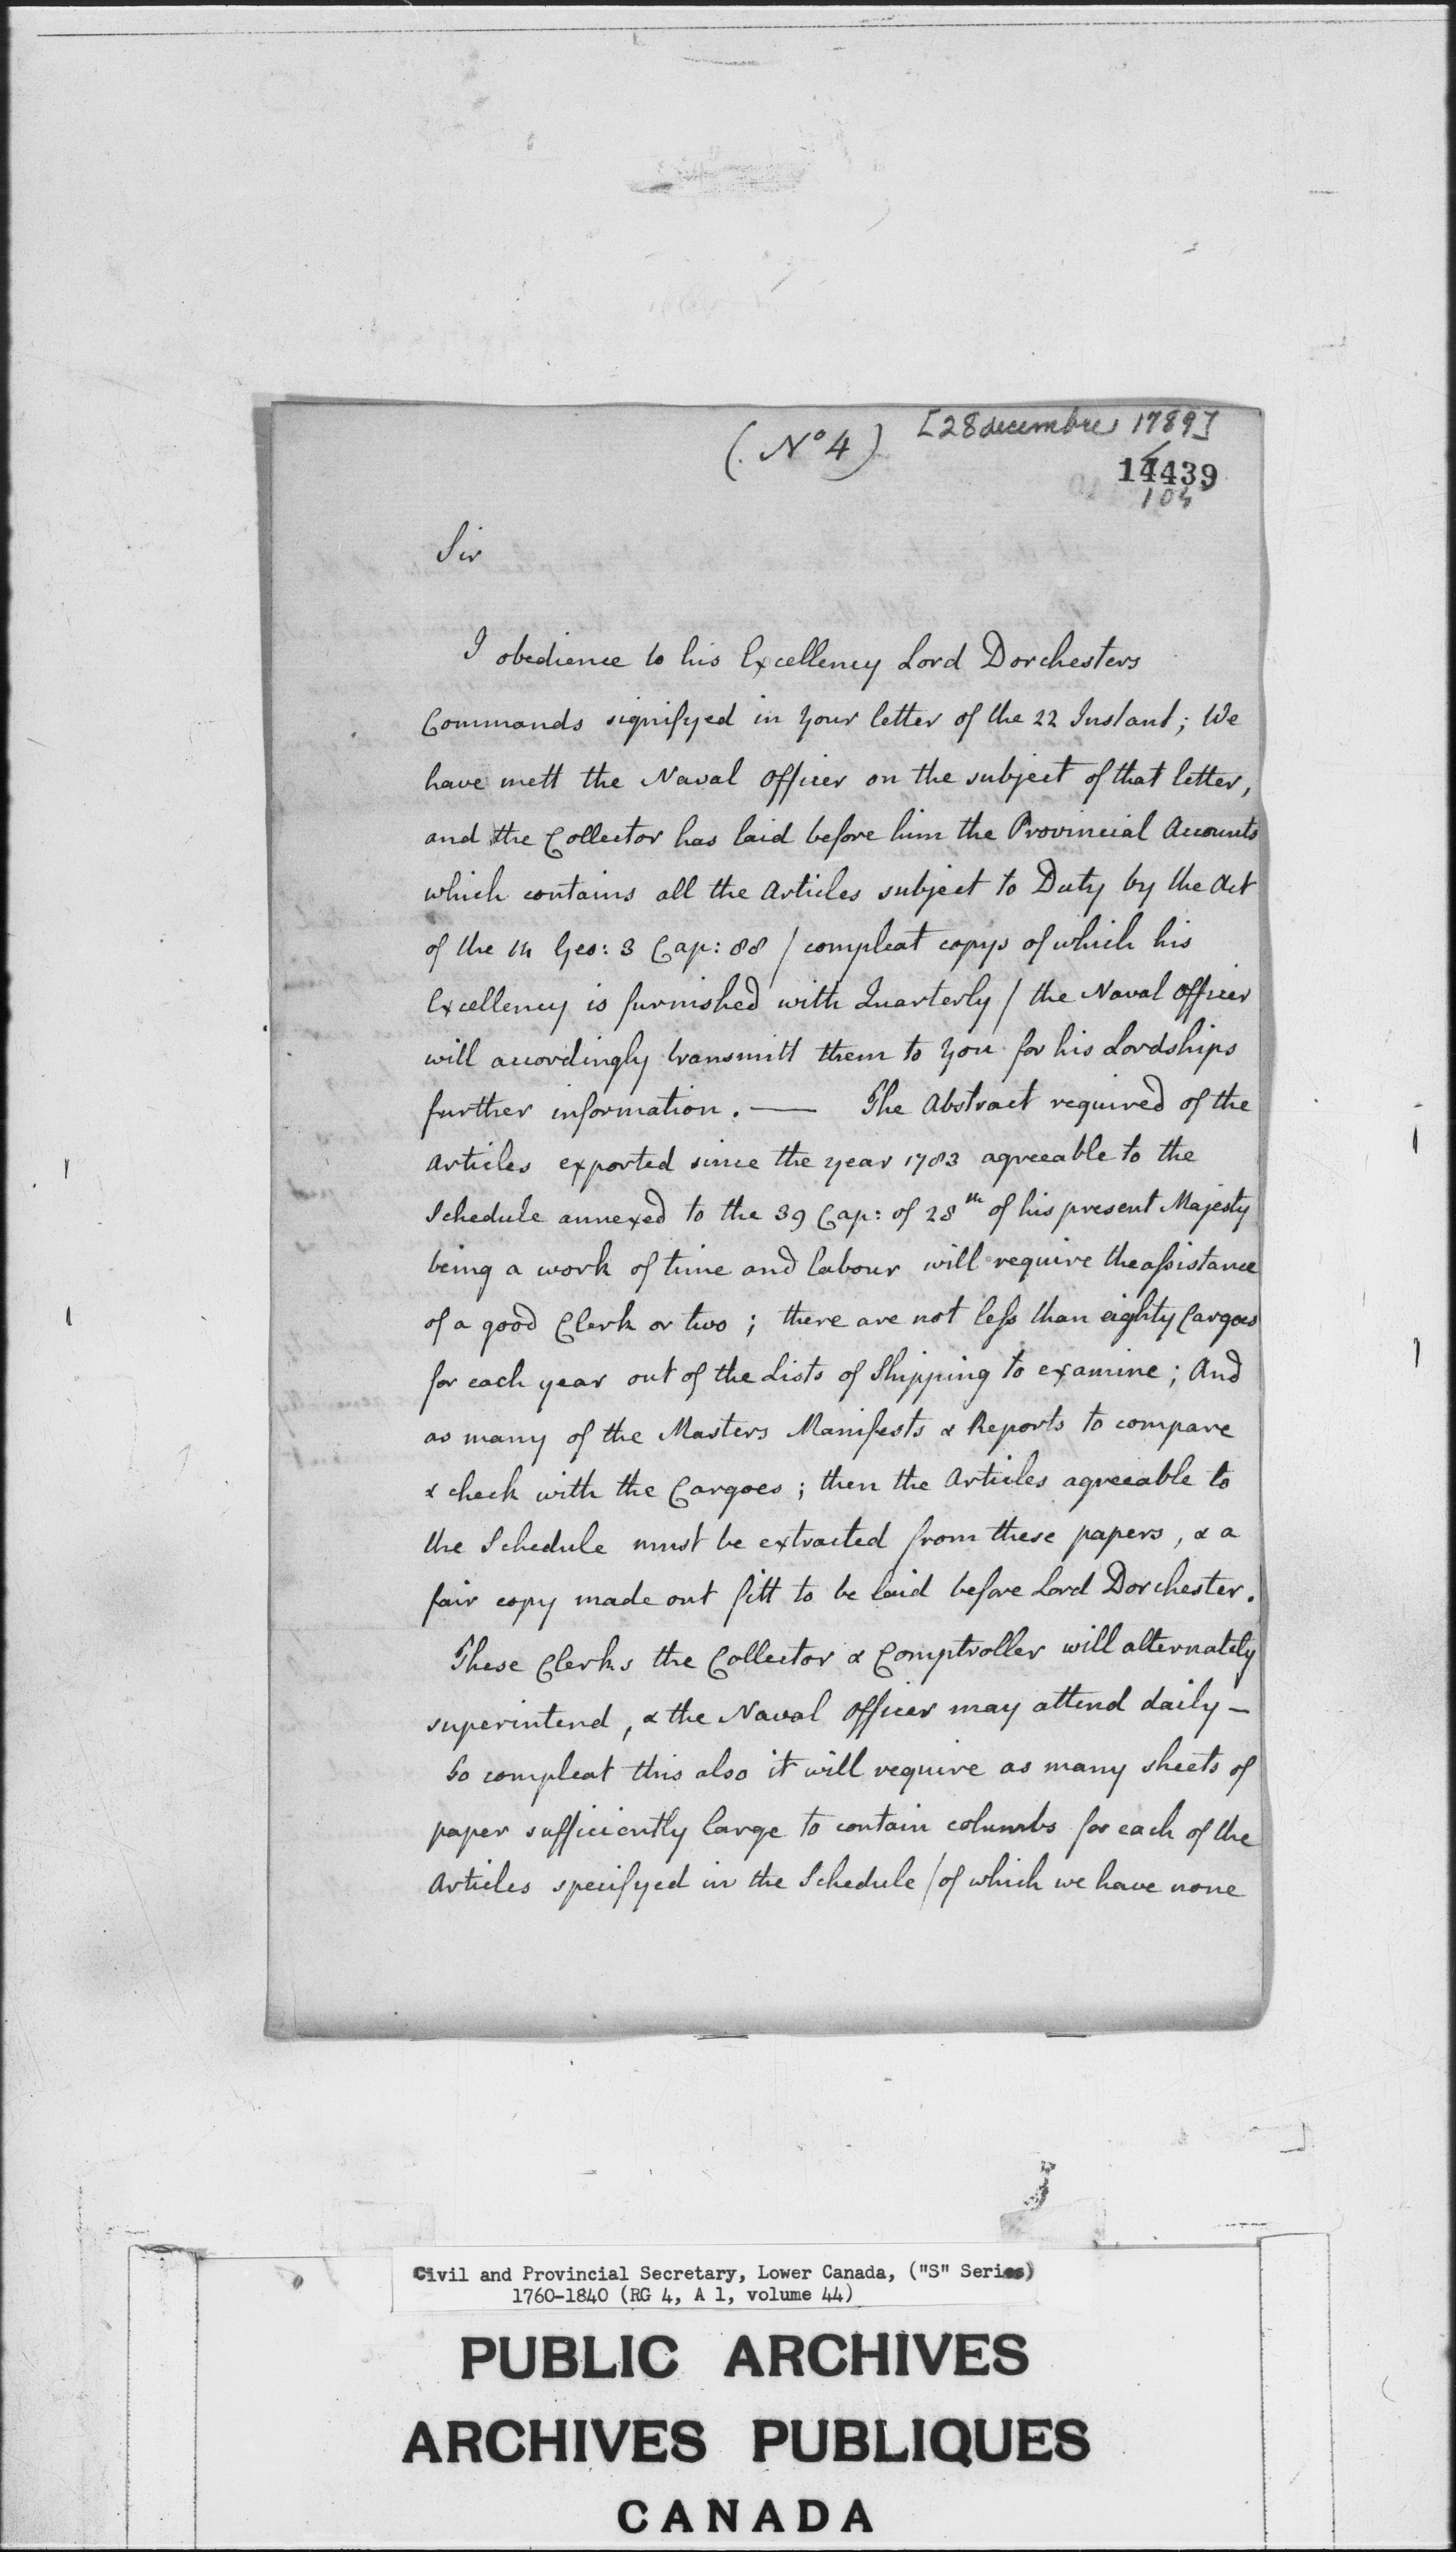 (N° 4)
[28 decembre 1789]
14439
104
Sir
I obedience to his Excellency Lord Dorchesters
Commands signifyed in your letter of the 22 Instant; We
have mett the Naval Officer on the subject of that letter,
and the Collector has laid before him the Provincial Accounts
which contains all the Articles subject to Duty by the Act
of the 14 Geo: 3 Cap: 88 / compleat copys of which his
Excellency is furnished with Quarterly / the Naval Officer
will accordingly transmitt them to you for his Lordships
further information. — The Abstract required of the
Articles exported since the year 1783 agreeable to the
Schedule annexed to the 39 Cap: of 28th of his present Majesty
being a work of time and labour will require the assistance
of a good Clerk or two; there are not less than eighty Cargoes
for each year out of the Lists of Shipping to examine; And
as many of the Masters Manifests & Reports to compare
& check with the Cargoes; then the Articles agreeable to
the Schedule must be extracted from these papers, & a
fair copy made out fitt to be laid before Lord Dorchester.
These Clerks the Collector & Comptroller will alternately
superintend, & the Naval Officer may attend daily —
to compleat this also it will require as many sheets of
paper sufficiently large to contain columbs for each of the
Articles specifyed in the Schedule / of which we have none
Civil and Provincial Secretary, Lower Canada, ("S" Series)
1760-1840 (RG 4, A 1, volume 44)
PUBLIC ARCHIVES
ARCHIVES PUBLIQUES
CANADA